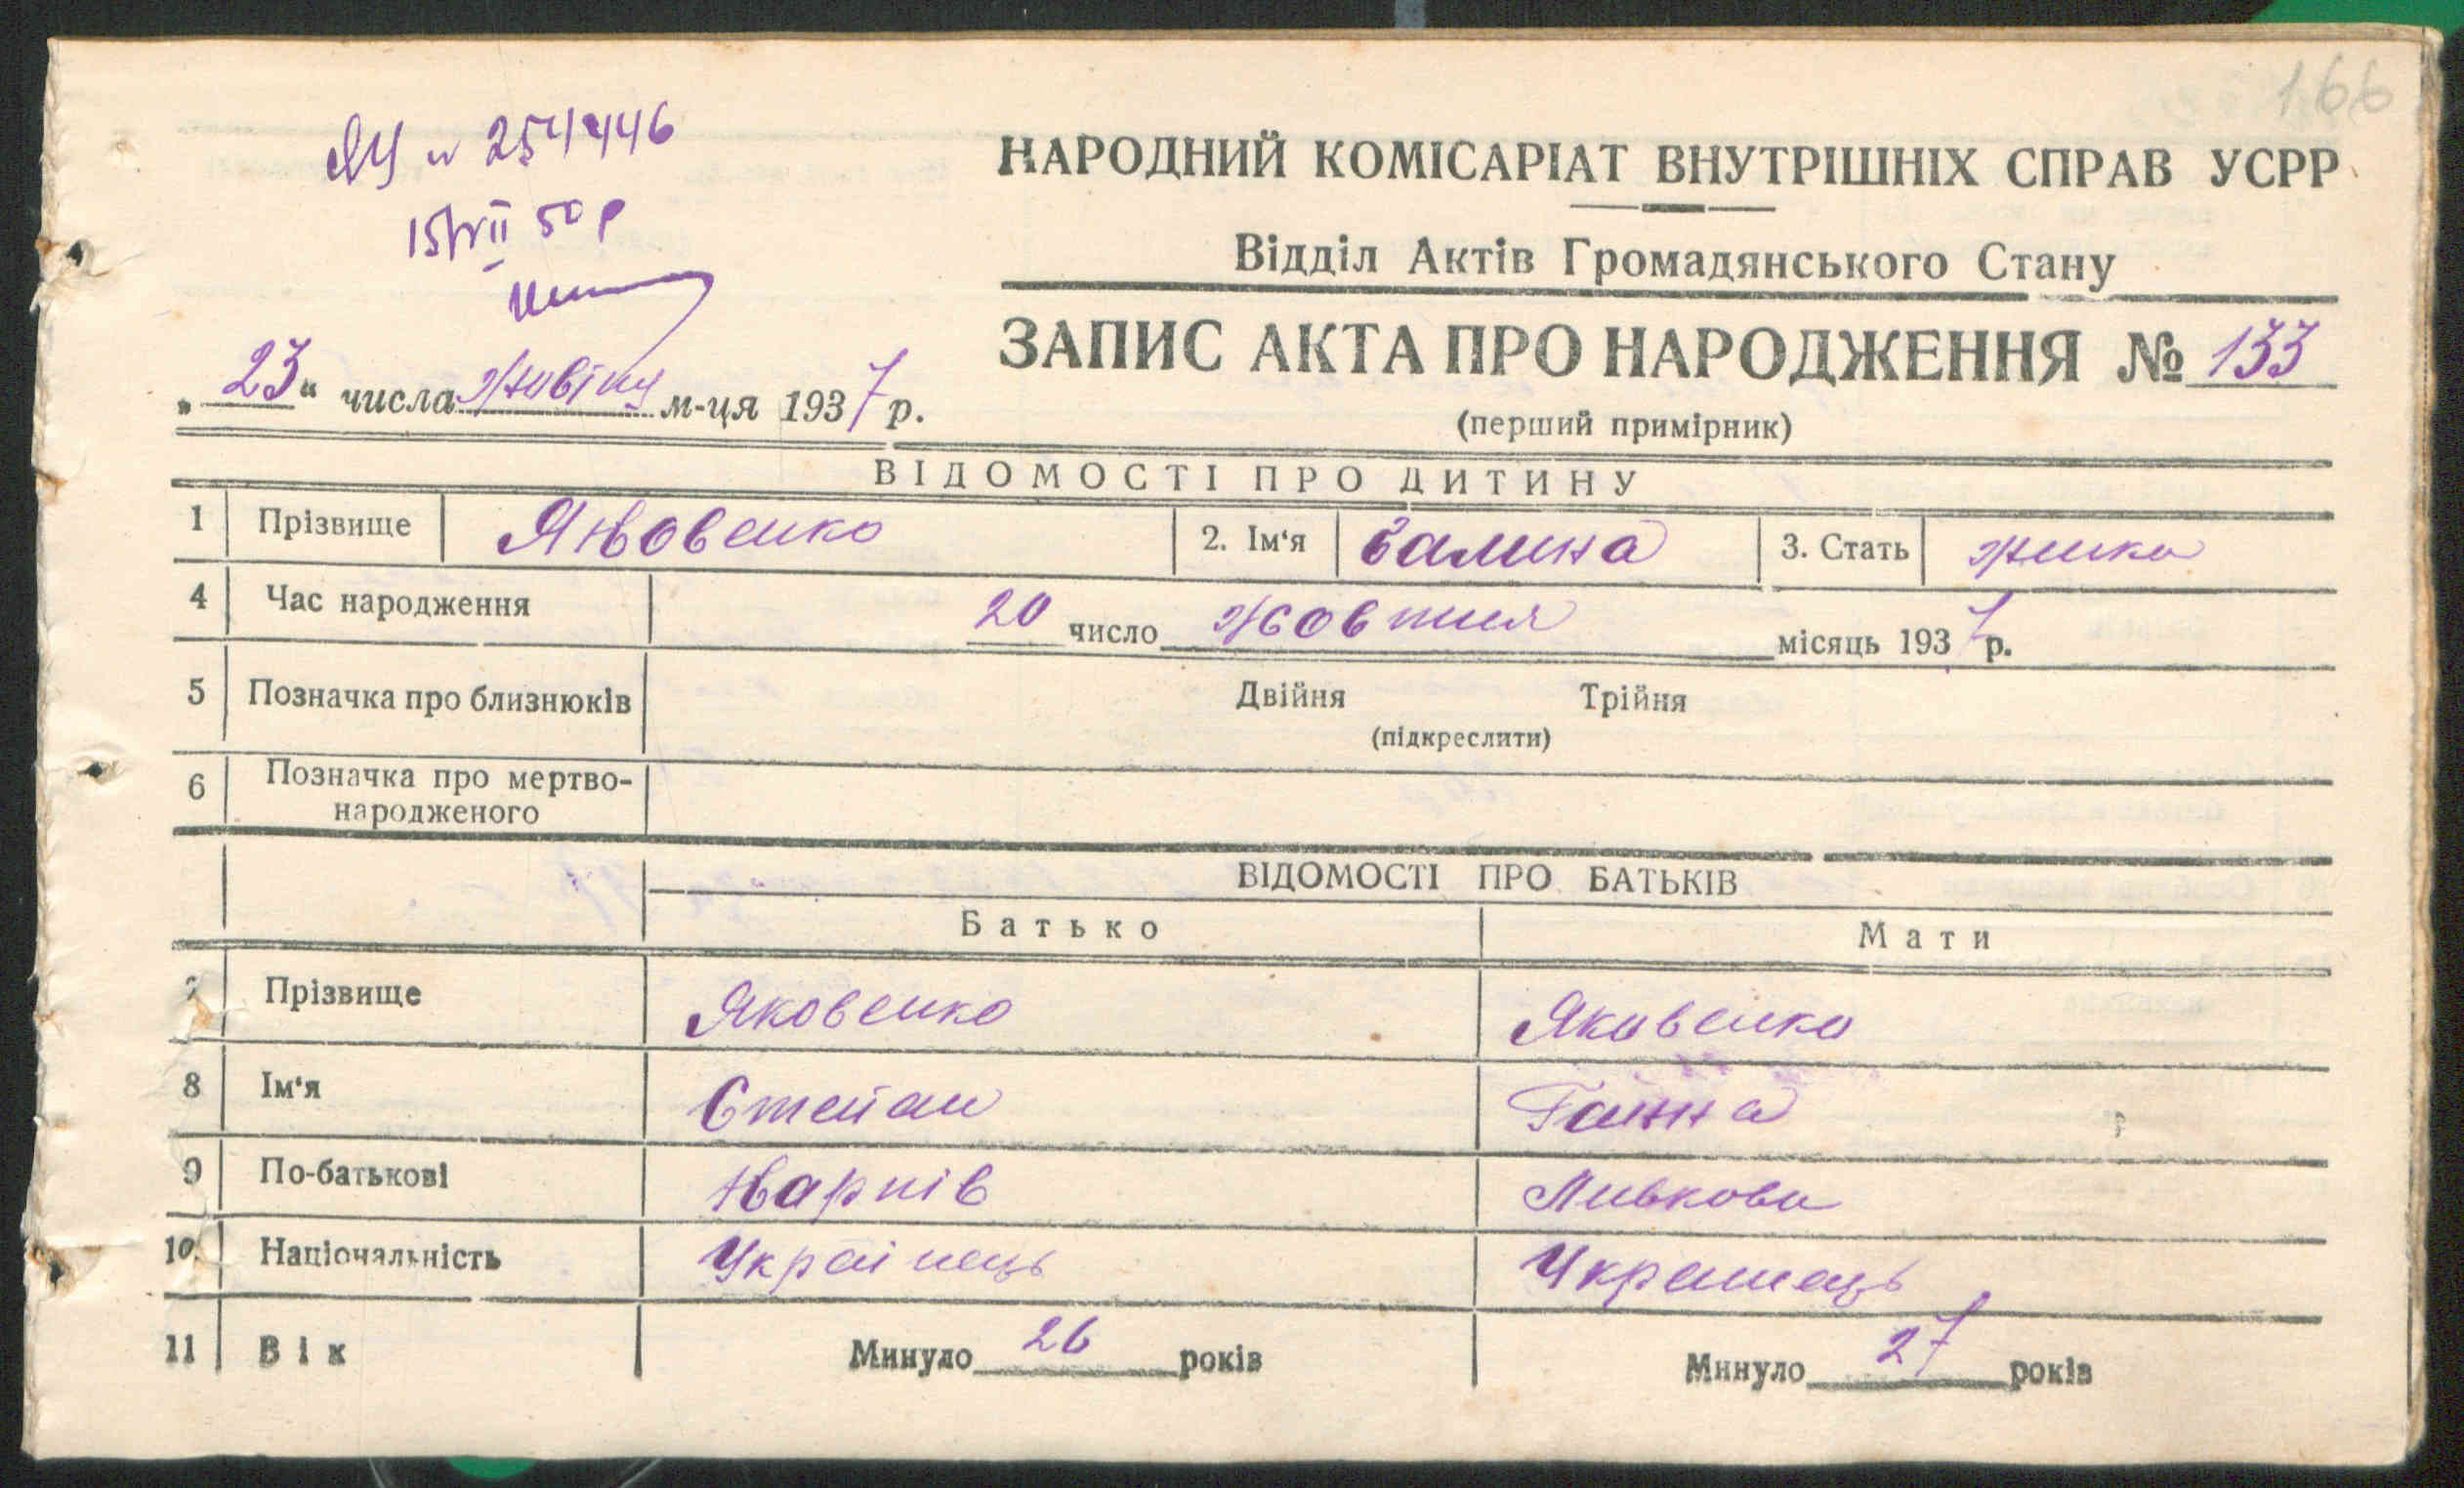 166
ЯЦ № 254446
15/VII 50 р
НАРОДНИЙ КОМІСАРІАТ ВНУТРІШНІХ СПРАВ УСРР
Відділ Актів Громадянського Стану
ЗАПИС АКТА ПРО НАРОДЖЕННЯ № 133
„ 23 “ числа м-ця 1937 р.
(перший примірник)
ВІДОМОСТІ ПРО ДИТИНУ
1 Прізвище Яковенко 2. Ім‘я Галина 3. Стать жінка
4 Час народження 20 число жовтня місяць 1937 р.
5 Позначка про близнюків Двійня Трійня
(підкреслити)
6 Позначка про мертво-
народженого
ВІДОМОСТІ ПРО БАТЬКІВ
Батько Мати
7 Прізвище Яковенко Яковенко
8 Ім‘я Степан Ганна
9 По-батькові Карпів
10. Національність Українець Українець
11 Вік Минуло 26 років Минуло 27 років